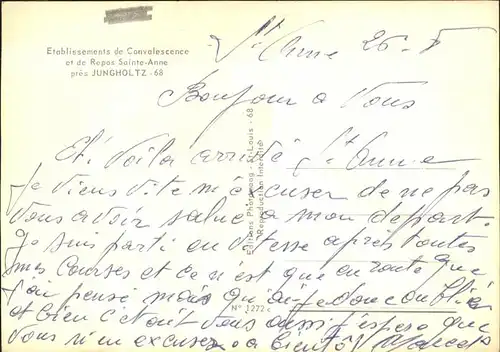 Etablissements de Convalescence
et de Repos Sainte-Anne
près JUNGHOLTZ - 68
St Anne 26-5
Bonjour a Vous
Et Voila arrivé St Anne
Je viens vite m'excuser de ne pas
Vous avoir salué a mon depart.
Je suis parti en vitesse après toutes
mes courses et ce n'est que en route que
j'ai pensé mais qu'ai-je donc oublié
et bien c'etait vous aussi j'espere que
Vous m'en excuser. a bientôt Marcel
Editions Photorong - St-Louis - 68
Reproduction Interdite
N° 1272